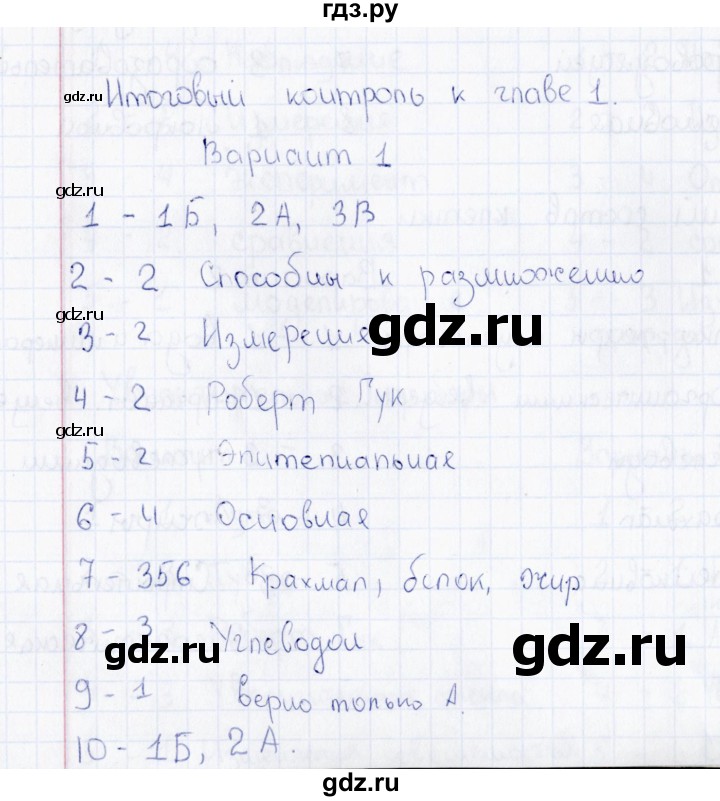 гдз.ру
Итоговый контроль к главе 1.
gdz.ru
Вариант 1
gdz.ru
1 - 1Б, 2А, 3В
2 - 2 Способны к размножению
gdz.ru
3 - 2 Измерения
gdz.ru
4 - 2 Роберт Гук
gdz.ru
5 - 2 Эпителиальная
6 - 4 Основная
7 - 356 Крахмал, белок, жир
8 - 3 Углеводом
gdz.ru
gdz.ru
9 - 1 верно только А.
10 - 1Б, 2А.
gdz.ru